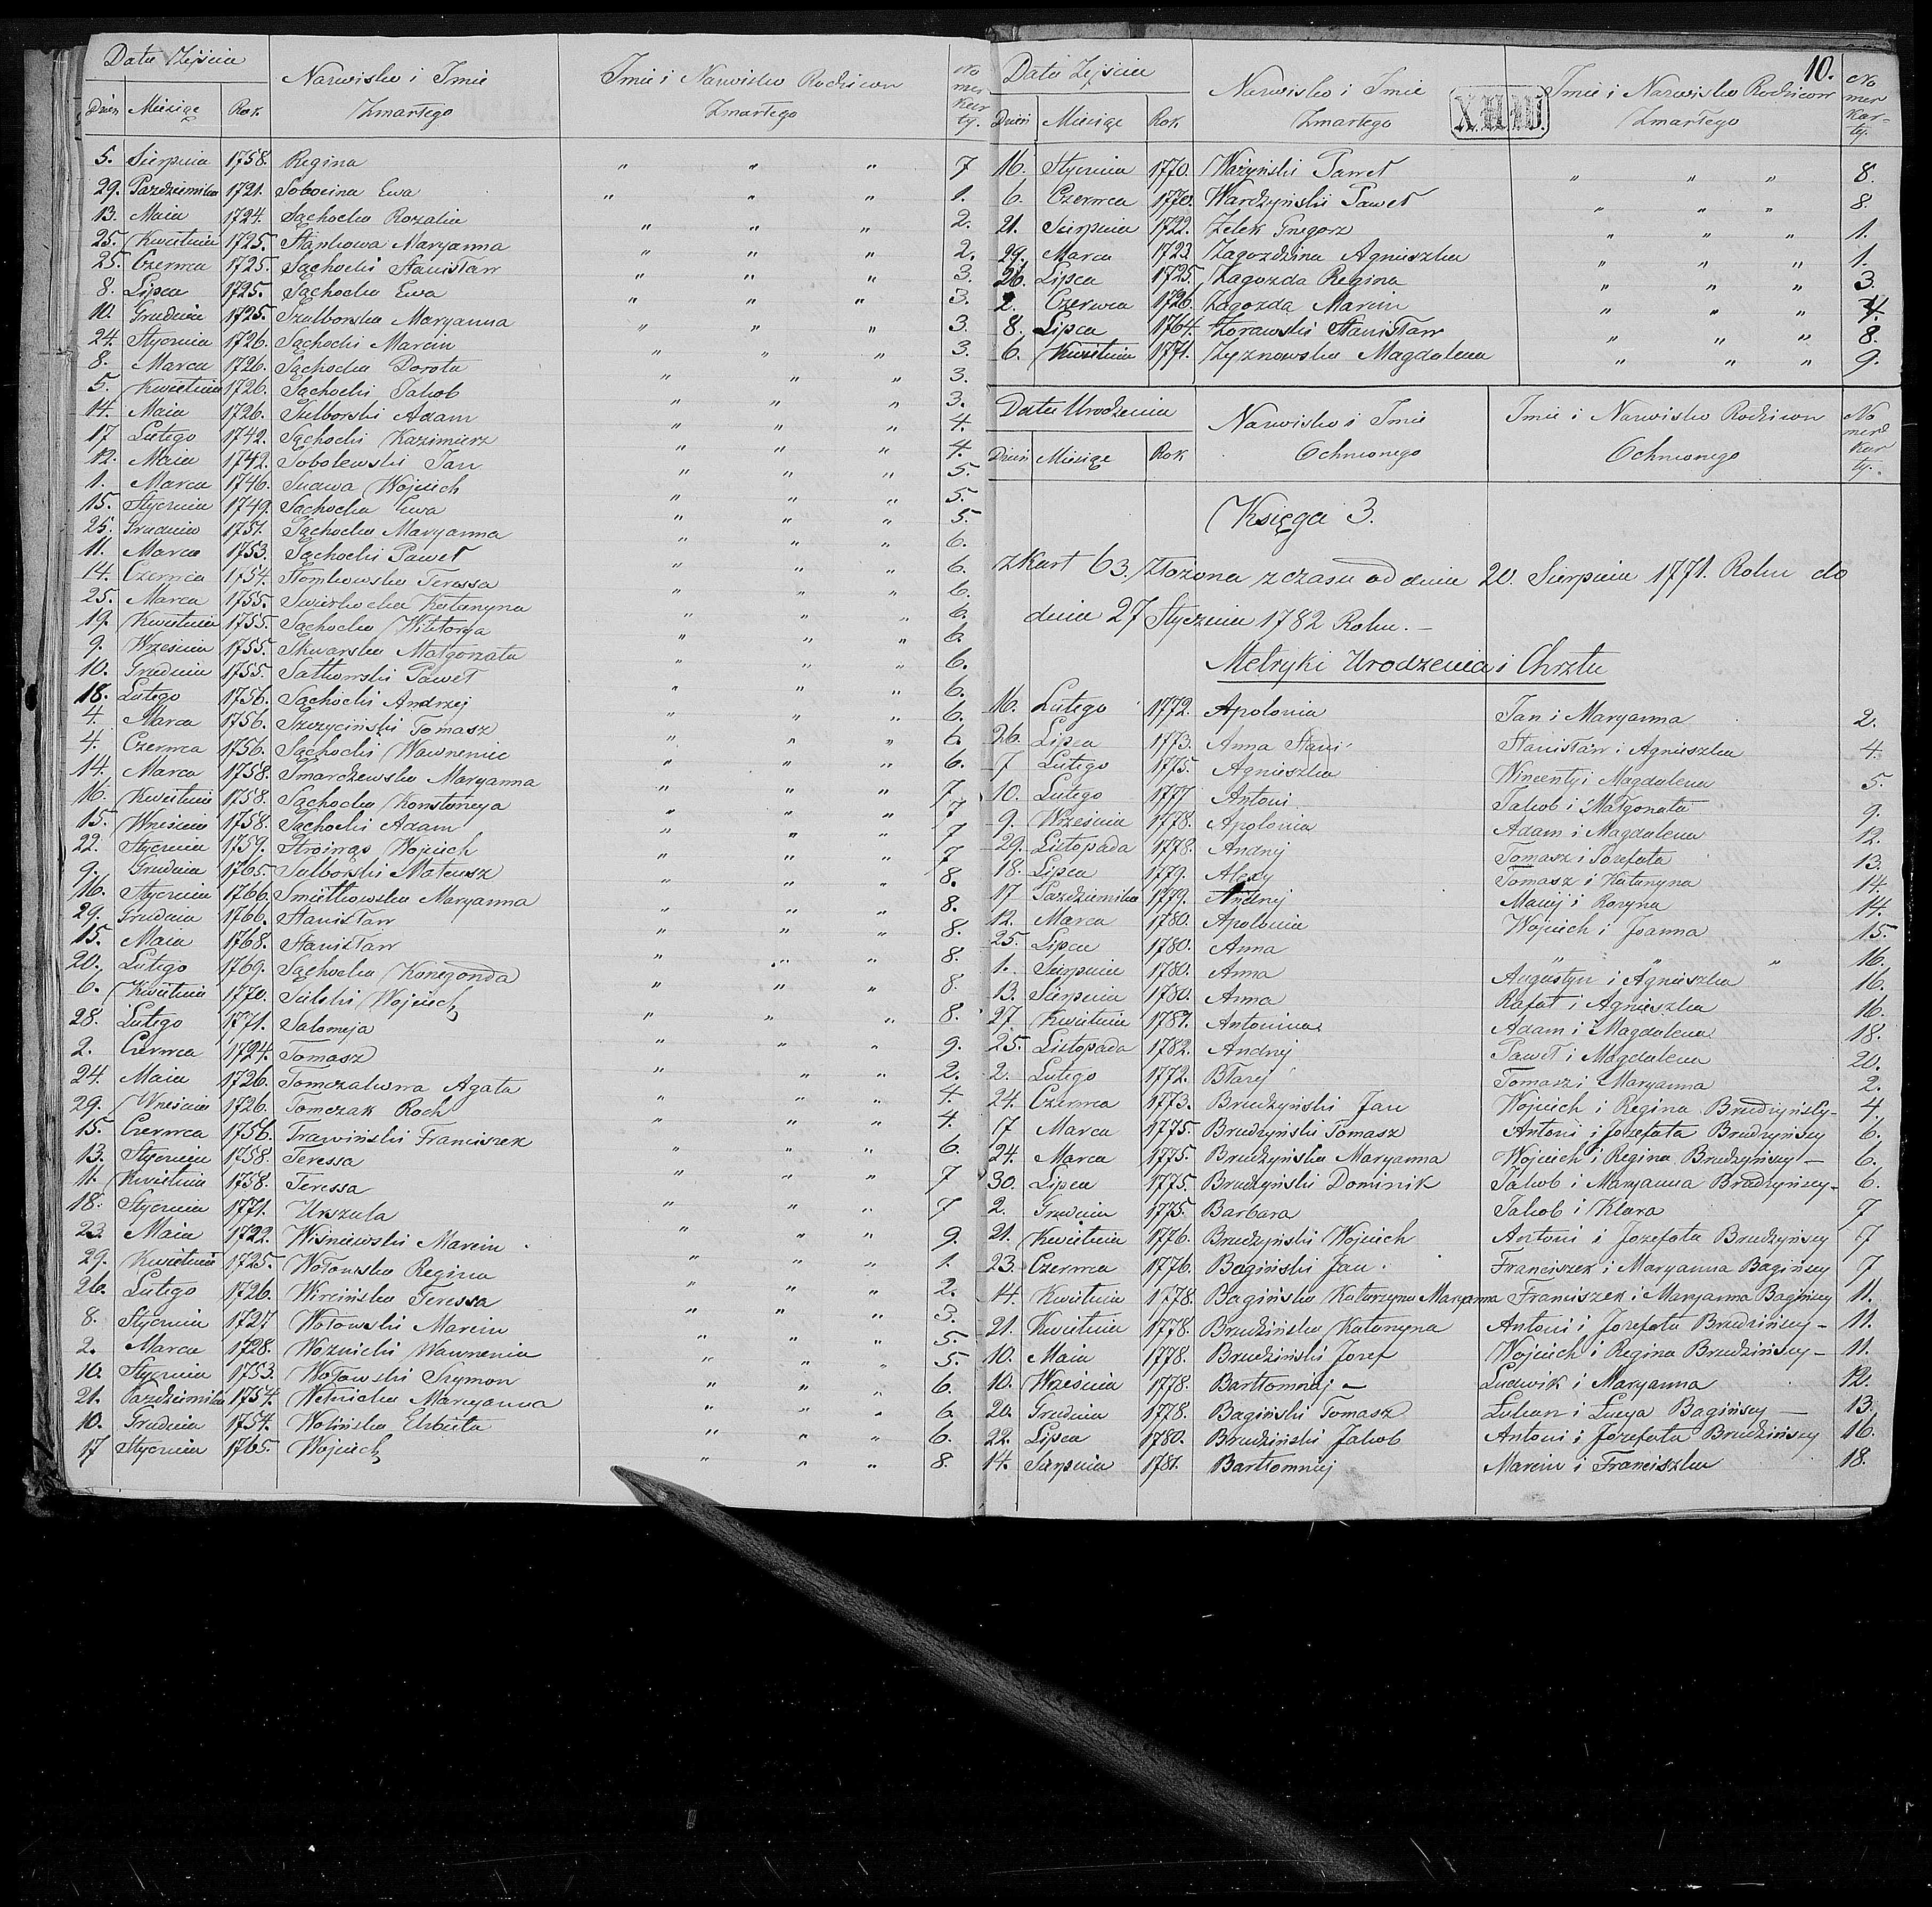 Data Zejścia | Nazwisko i Imie Zmarłego | Imie i Nazwisko Rodziców Zmarłego | No mer Kar ty.
Dzień | Miesiąc | Rok
5. Sierpnia 1758. Regina " " " 7
29. Pazdziernika 1721. Sobocina Ewa " " " 1.
13. Maia 1724. Sąchocka Rozalia " " " 2.
25. Kwietnia 1725. Stankowa Maryanna " " " 2.
25. Czerwca 1725. Sąchocki Stanisław " " " 3.
8. Lipca 1725. Sąchocka Ewa " " " 3.
10. Grudnia 1725. Szulborska Maryanna " " " 3.
24. Stycznia 1726. Sąchocki Marcin " " " 3.
8. Marca 1726. Sąchocka Dorota " " " 3.
5. Kwietnia 1726. Sąchocki Jakob " " " 3.
14. Maia 1726. Adam " " " 4.
17 Lutego 1742. Sąchocki Kazimierz " " " 4.
12. Maia 1742. Sobolewski Jan " " " 5.
1. Marca 1746. Wojciech " " " 5.
15. Stycznia 1749. Sąchocka Ewa " " " 5.
25. Grudnia 1751. Sąchocka Maryanna " " " 6.
11. Marca 1753. Sąchocki Paweł " " " 6.
14. Czerwca 1754. Słomkowska Teressa " " " 6.
25. Marca 1755. Katarzyna " " " 6.
19. Kwietnia 1755. Sąchocka Wiktorya " " " 6.
9. Września 1755. Skwarska Małgorzata " " " 6.
10. Grudnia 1755. Sutkowski Paweł " " " 6.
18. Lutego 1756. Sąchocki Andrzej " " " 6.
4. Marca 1756. Szczyciński Tomasz " " " 6.
4. Czerwca 1756. Sąchocki Wawrzeniec " " " 6.
14. Marca 1758. Smardzewska Maryanna " " " 7
16. Kwietnia 1758. Sąchocka Konstancya " " " 7
15. Września 1758. Sąchocki Adam " " " 7
22. Stycznia 1759. Wojciech " " " 7
9. Grudnia 1765. Sulborski Mateusz " " " 8.
16. Stycznia 1766. Smiutkowska Maryanna " " " 8.
29. Grudnia 1766. Stanisław " " " 8.
15. Maia 1768. Stanisław " " " 8.
20. Lutego 1769. Sąchocka Konegonda " " " 8.
6. Kwietnia 1770. Wojciech " " " 8.
28. Lutego 1771. Salomeja " " " 9.
2. Czerwca 1724. Tomasz " " " 2.
24. Maia 1726. Tomczakowa Agata " " " 4.
29. Września 1726. Tomczak Roch " " " 4.
15. Czerwca 1756. Trawiński Franciszek " " " 6.
13. Stycznia 1758. Teressa " " " 7
11. Kwietnia 1758. Teressa " " " 7
18. Stycznia 1771. Urszula " " " 9.
23. Maia 1722. Wisniewski Marcin " " " 1.
29. Kwietnia 1725. Wołowska Regina " " " 2.
26. Lutego 1726. Wircińska Teressa " " " 3.
8. Stycznia 1727 Wołowski Marcin " " " 5.
2. Marca 1728. Woznicki Wawrzenia " " " 5.
10. Stycznia 1753. Wołowski Szymon " " " 6.
21. Pazdziernika 1754. Maryanna " " " 6.
10. Grudnia 1754. Wolińska Elzbieta " " " 6.
17 Stycznia 1765. Wojciech " " " 8.
10.
X.H.W.
Data Zejścia | Nazwisko i Imie Zmarłego | Imie i Nazwisko Rodziców Zmarłego | No mer Kar- ty.
Dzień | Miesiąc | Rok
16. Stycznia 1770. Ważyński Paweł " " " 8.
6. Czerwca 1770. Wardzyński Paweł " " " 8.
21. Sierpnia 1722. Zelek Grzegorz " " " 1.
29. Marca 1723. Zagozdzina Agnieszka " " " 1.
26. Lipca 1725. Zagozda Regina " " " 3.
2. Czerwca 1726. Zagozda Marcin " " " 4.
8. Lipca 1764. Żórawski Stanisław " " " 8.
6. Kwietnia 1771. Zyznowska Magdalena " " " 9.
Data Urodzenia | Nazwisko i Imie Ochrzconego | Imie i Nazwisko Rodziców Ochrzconego | No mer Kar ty.
Dzień | Miesiąc | Rok
Księga 3.
z Kart 63. złożona z czasu od dnia 20. Sierpnia 1771. Roku do
dnia 27 Stycznia 1782 Roku. –
Metryki Urodzenia i Chrztu
16. Lutego 1772. Apolonia Jan i Maryanna 2.
26. Lipca 1773. Anna Stani Stanisław i Agnieszka 4.
7 Lutego 1775. Agnieszka Wincenty i Magdalena 5.
10. Lutego 1777 Antoni Jakob i Małgorzata 9.
9. Września 1778. Apolonia Adam i Magdalena 12.
29. Listopada 1778. Andrzej Tomasz i Jozefata 13.
18. Lipca 1779. Alexy Tomasz i Katarzyna 14.
17 Pazdziernika 1779. Andrzej Maciej i Rozyna 14.
12. Marca 1780. Apolonia Wojciech i Joanna 15.
25. Lipca 1780. Anna " " " 16.
1. Sierpnia 1780. Anna Augustyn i Agnieszka 16.
13. Sierpnia 1780. Anna Rafał i Agnieszka 16.
27. Kwietnia 1781. Antonina Adam i Magdalena 18.
25. Listopada 1782. Andrzej Paweł i Magdalena 20.
2. Lutego 1772. Błażej Tomasz i Maryanna 2.
24. Czerwca 1773. Brudzyński Jan Wojciech i Regina Brudzyńscy – 4.
17 Marca 1775. Brudzyński Tomasz Antoni i Jozefata Brudzyńscy 6.
24. Marca 1775. Brudzyńska Maryanna Wojciech i Regina Brudzyńscy – 6.
30. Lipca 1775. Brudzyński Dominik Jakob i Maryanna Brudzyńscy – 6.
2. Grudnia 1775. Barbara Jakob i Klara 7
21. Kwietnia 1776. Brudzyński Wojciech Antoni i Jozefata Brudzyńscy 7
23. Czerwca 1776. Bagiński Jan. Franciszek i Maryanna Bagińscy 7
14. Kwietnia 1778. Bagińska Katarzyna Maryanna Franciszek i Maryanna Bagińscy 11.
21. Kwietnia 1778. Brudzińska Katarzyna Antoni i Jozefata Brudzińscy – 11.
10. Maia 1778. Brudziński Jozef Wojciech i Regina Brudzińscy – 11.
10. Września 1778. Bartłomniej – Ludwik i Maryanna 12.
20. Grudnia 1778. Bagiński Tomasz Łukasz i Łucya Bagińscy – 13.
22. Lipca 1780. Brudziński Jakob Antoni i Jozefata Brudzińscy 16.
14. Sierpnia 1781. Bartłomniej Marcin i Franciszka 18.